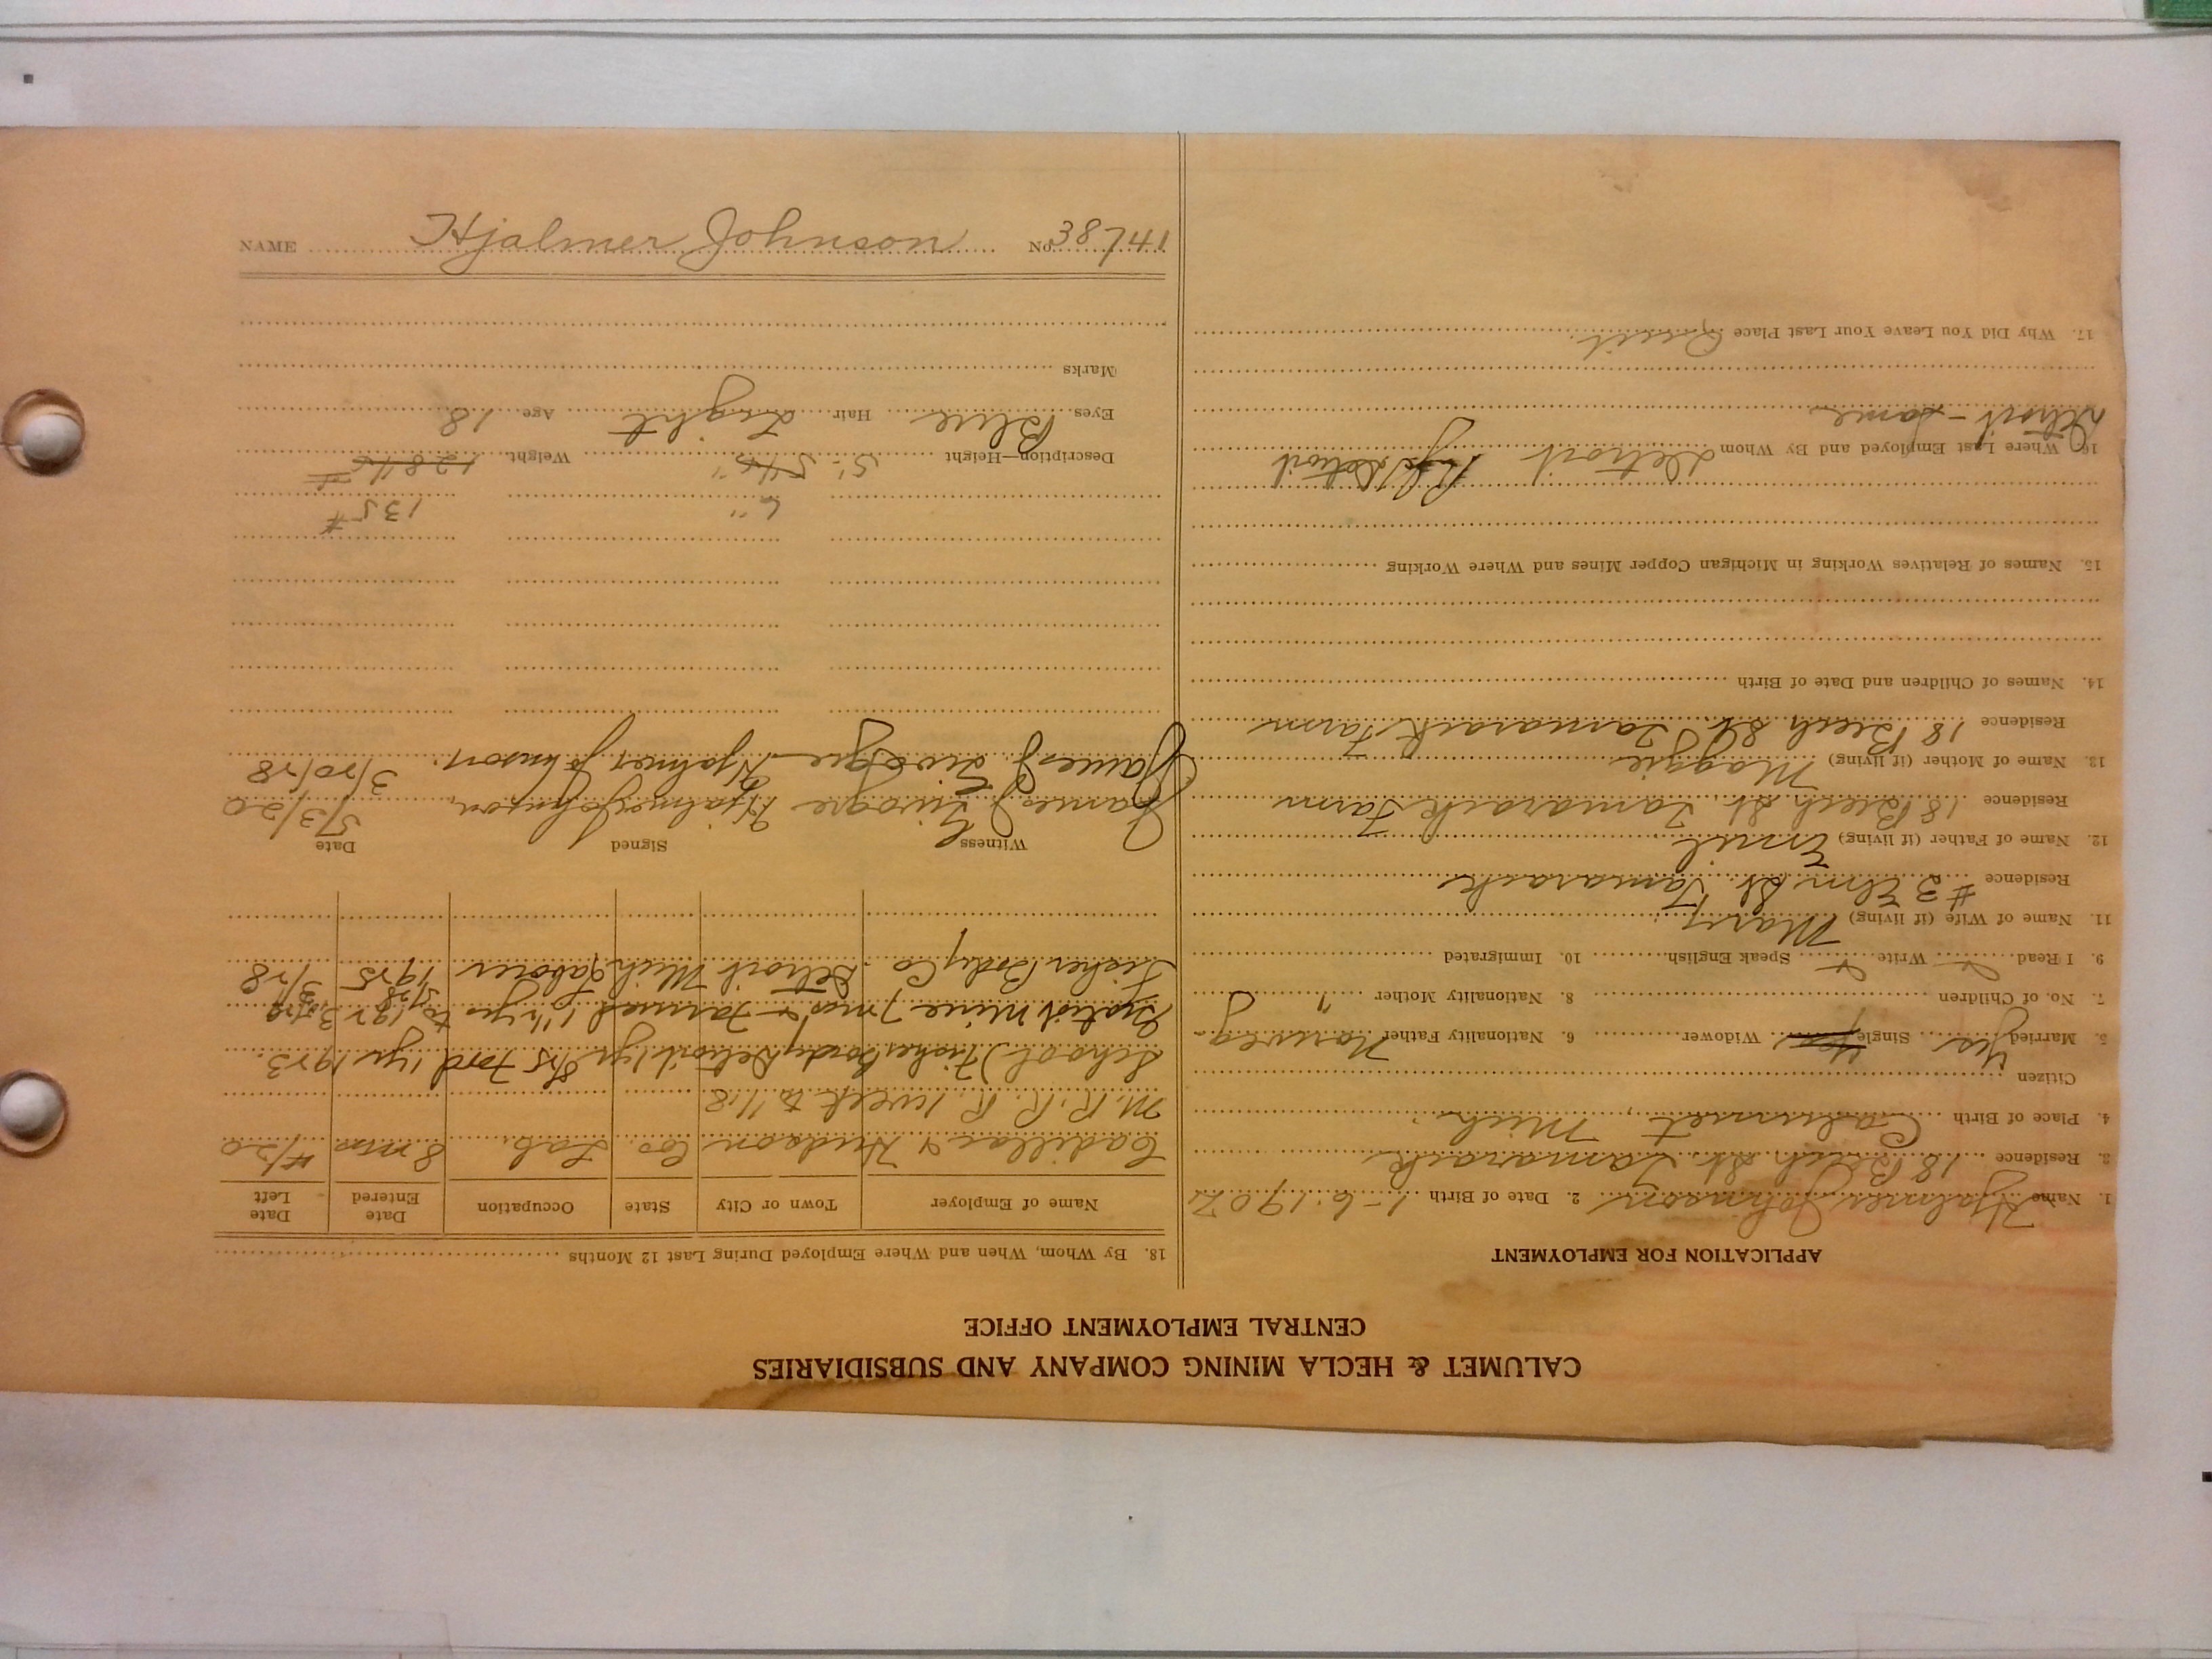 CALUMET & HECLA MINING COMPANY AND SUBSIDIARIES
CENTRAL EMPLOYMENT OFFICE
APPLICATION FOR EMPLOYMENT
1. Name Hjalmer Johnson 2. Date of Birth 1-6-1902
3. Residence 18 Beech St. Tamarack
4. Place of Birth Calumet, Mich.
Citizen
5. Married Yes Single Widower 6. Nationality Father Norweg.
7. No. of Children 8. Nationality Mother "
9. I Read Write Speak English 10. Immigrated
11. Name of Wife (if living) Mary
Residence #3 Elm St. Tamarack
12. Name of Father (if living) Emil
Residence 18 Beech St. Tamarack Farm
13. Name of Mother (if living) Maggie
Residence 18 Beech St. Tamarack Farm
14. Names of Children and Date of Birth
15. Names of Relatives Working in Michigan Copper Mines and Where Working
16. Where Last Employed and By Whom Detroit Detroit
Detroit - Same
17. Why Did You Leave Your Last Place Quit.
18. By Whom, When and Where Employed During Last 12 Months
Name of Employer Town or City State Occupation Date Entered Date Left
Cadillac & Hudson Co. Lab. 8 mos 4/20
M. R. R. R. 1 week to 11.8
School) Fisher Body Detroit 1 yr Ford 1 yr 1923.
Mine 7 mos & Farmed 1 1/2 yrs to
Fisher Body Co. Detroit Mich. Laborer 1925 3/28
Witness Signed Date
James J. Hjalmer Johnson. 5/3/20
James J. Hjalmer Johnson. 3/20/28
6" 135#
Description—Height 5'- 5 1/2" Weight 128 1/2 #
Eyes Blue Hair Light Age 18
Marks
NAME Hjalmer Johnson No. 38741